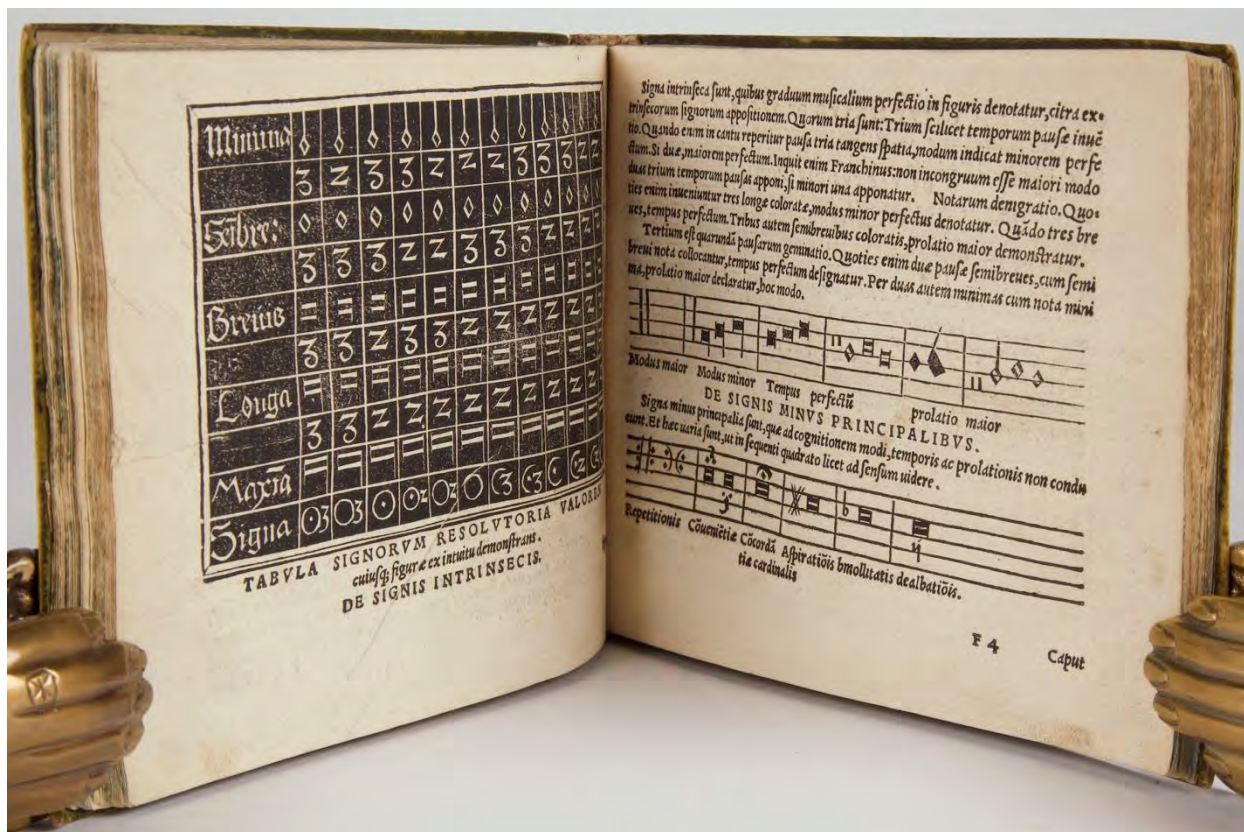 Minima
3 2 3 3 2 2 2 3 3 3 2 2
Sẽibre:
3 3 3 2 2 3 2 2 2
Breuis
3 3 2 3 3 2 2 2 2 2
Longa
3 3 2 2 2 2 2 2 2 2
Maxĩa
Signa
TABVLA SIGNORVM RESOLVTORIA VALOREM
cuiusq; figuræ ex intuitu demonstrans.
DE SIGNIS INTRINSECIS.
Signa intrinſeca ſunt, quibus graduum muſicalium perfectio in figuris denotatur, citra ex-
trinſecorum ſignorum appoſitionem. Quorum tria ſunt: Trium ſcilicet temporum pauſæ inuẽ
tio. Quando enim in cantu reperitur pauſa tria tangens ſpatia, modum indicat minorem perfe
ctum. Si duæ, maiorem perfectum. Inquit enim Franchinus: non incongruum eſſe maiori modo
duas trium temporum pauſas apponi, ſi minori una apponatur. Notarum denigratio. Quo-
ties enim inueniuntur tres longæ coloratæ, modus minor perfectus denotatur. Quãdo tres bre
ues, tempus perfectum. Tribus autem ſemibreuibus coloratis, prolatio maior demonſtratur.
Tertium eſt quarundã pauſarum geminatio. Quoties enim duæ pauſæ ſemibreues, cum ſemi
breui nota collocantur, tempus perfectum deſignatur. Per duas autem minimas cum nota mini
ma, prolatio maior declaratur, hoc modo.
Modus maior Modus minor Tempus perfectũ prolatio maior
DE SIGNIS MINVS PRINCIPALIBVS.
Signa minus principalia ſunt, quæ ad cognitionem modi, temporis ac prolationis non condu
cunt. Et hæc uaria ſunt, ut in ſequenti quadrato licet ad ſenſum uidere.
Repetitionis Cõueniẽtiæ Cõcordã Aſpiratiõis bmollitatis dealbatiõis.
tiæ cardinalis
F 4 Caput